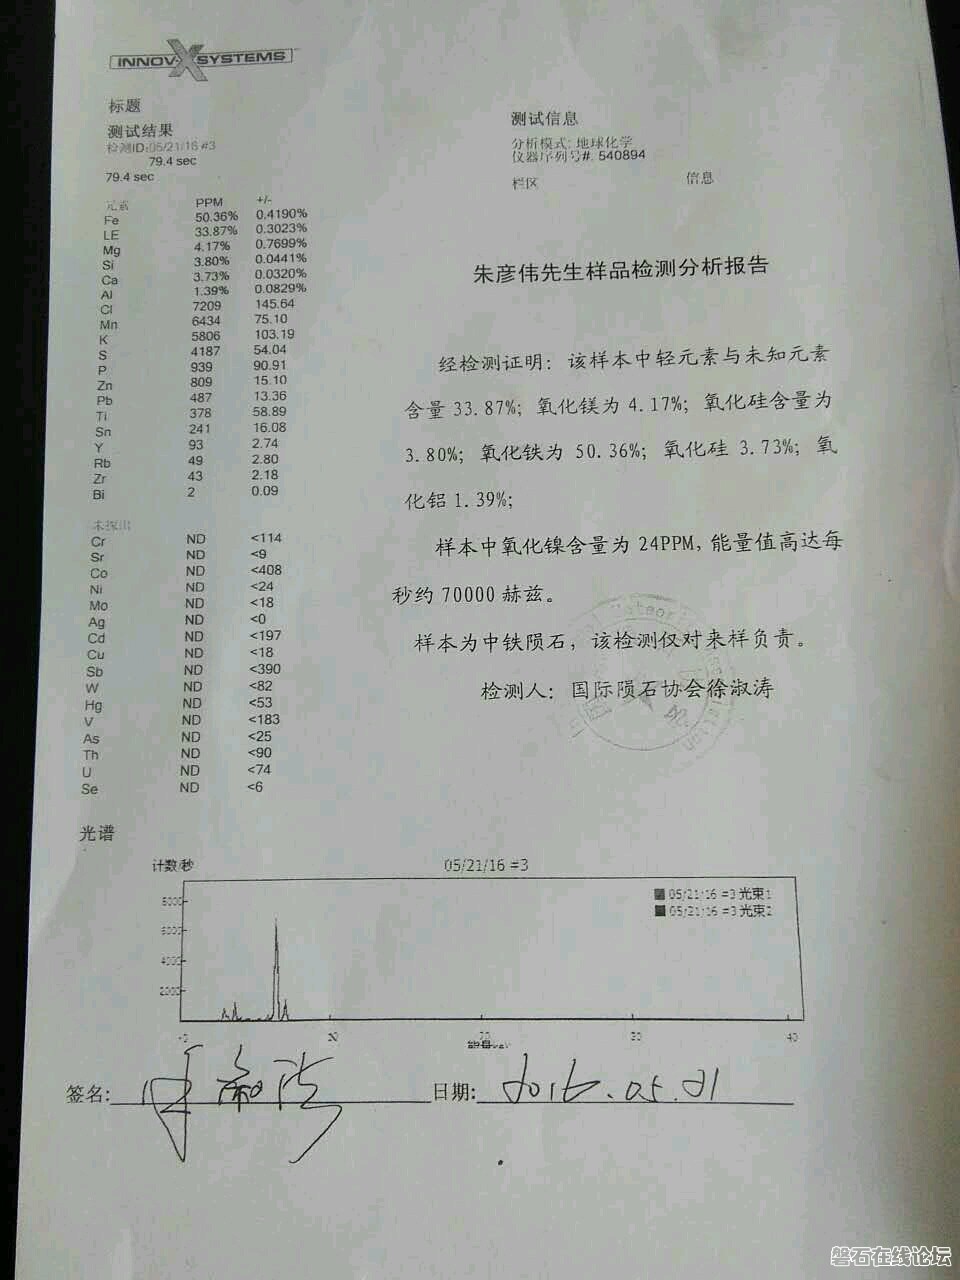 INNOV-X SYSTEMS
标题
测试结果
检测ID:05/21/16 #3
79.4 sec
79.4 sec
测试信息
分析模式: 地球化学
仪器序列号#: 540894
栏区 信息
元素 PPM +/-
Fe 50.36% 0.4190%
LE 33.87% 0.3023%
Mg 4.17% 0.7699%
Si 3.80% 0.0441%
Ca 3.73% 0.0320%
Al 1.39% 0.0829%
Cl 7209 145.64
Mn 6434 75.10
K 5806 103.19
S 4187 54.04
P 939 90.91
Zn 809 15.10
Pb 487 13.36
Ti 378 58.89
Sn 241 16.08
Y 93 2.74
Rb 49 2.80
Zr 43 2.18
Bi 2 0.09
未探出
Cr ND <114
Sr ND <9
Co ND <408
Ni ND <24
Mo ND <18
Ag ND <0
Cd ND <197
Cu ND <18
Sb ND <390
W ND <82
Hg ND <53
V ND <183
As ND <25
Th ND <90
U ND <74
Se ND <6
朱彦伟先生样品检测分析报告
经检测证明：该样本中轻元素与未知元素
含量 33.87%; 氧化镁为 4.17%; 氧化硅含量为
3.80%; 氧化铁为 50.36%; 氧化硅 3.73%; 氧
化铝 1.39%;
样本中氧化镍含量为 24PPM, 能量值高达每
秒约 70000 赫兹。
样本为中铁陨石，该检测仅对来样负责。
检测人：国际陨石协会徐淑涛
光谱
计数/秒 05/21/16 =3
05/21/16 =3 光束1
05/21/16 =3 光束2
6000
4000
2000
能量keV
签名:
日期: 2016.05.21
磐石在线论坛